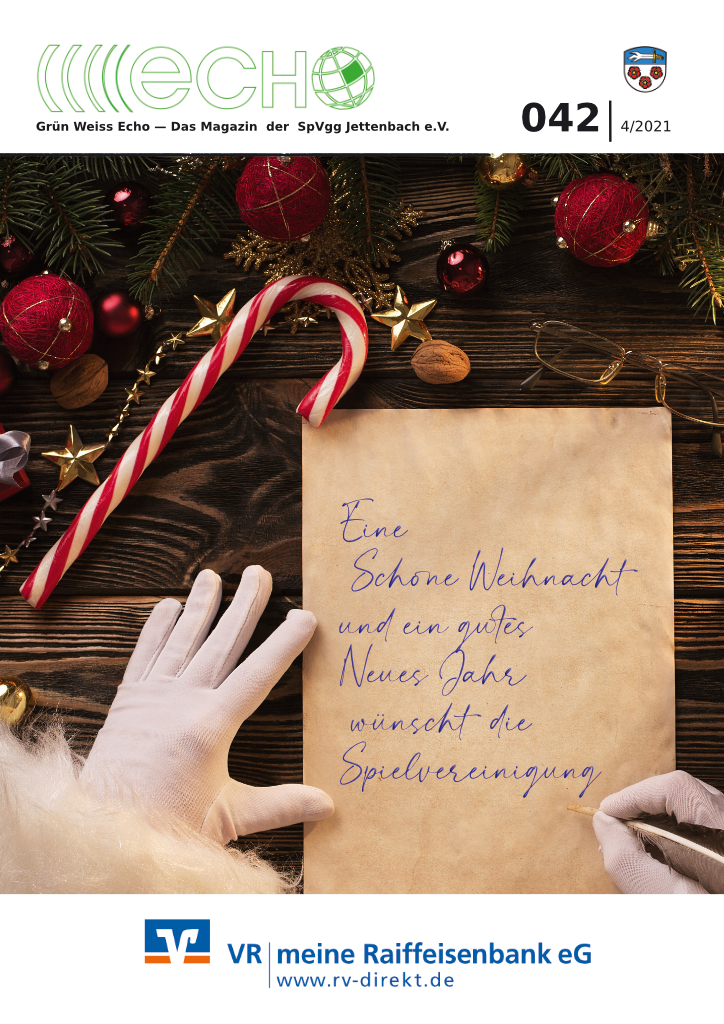 echo
Grün Weiss Echo — Das Magazin der SpVgg Jettenbach e.V.
042 | 4/2021
Eine
Schöne Weihnacht
und ein gutes
Neues Jahr
wünscht die
Spielvereinigung
VR | meine Raiffeisenbank eG
www.rv-direkt.de